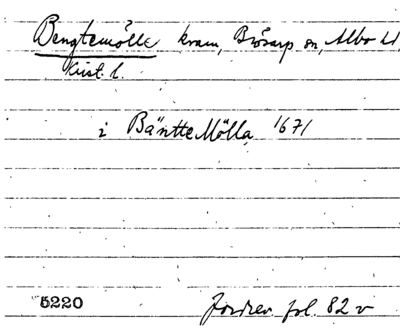 Bengtemölle kvarn, Brösarp sn, Albo hd,
Krist. l.
i Bäntte Mölla 1671
5220 Jordrev fol. 82 v